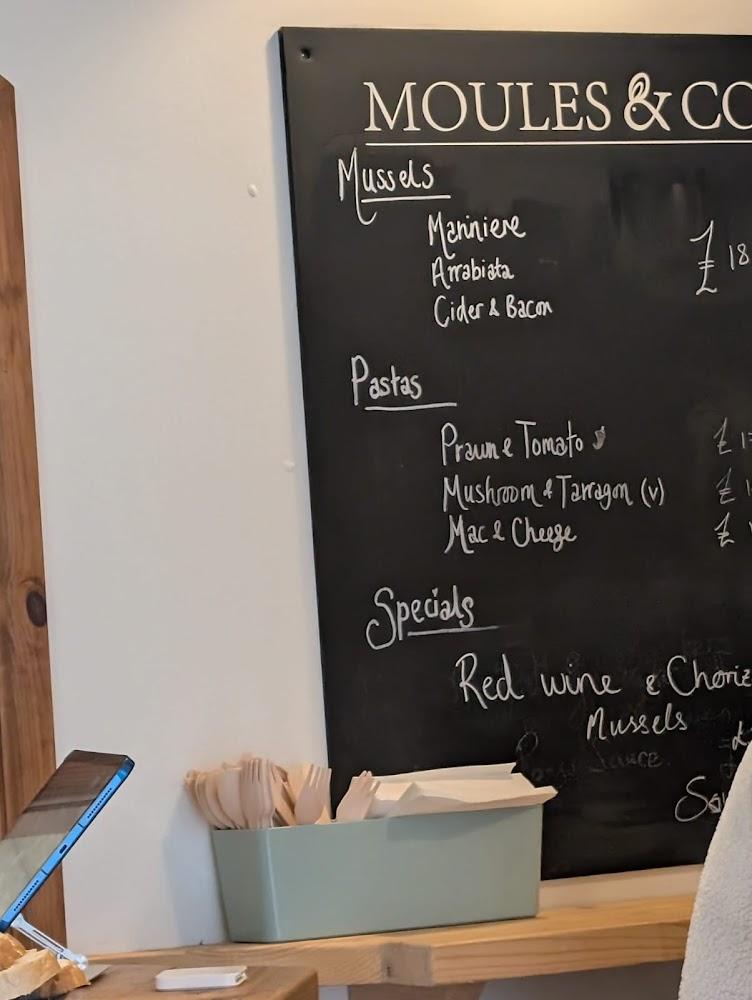 MOULES & CO
Mussels
Mariniere
Arrabiata
£ 18
Cider & Bacon
Pastas
Prawn & Tomato £ 1
Mushroom & Tarragon (v) £ 1
Mac & Cheese £
Specials
Red wine & Choriz
Mussels